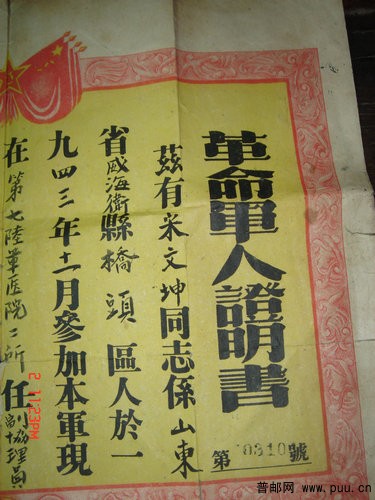 革命軍人證明書
第0310號
茲有米文坤同志係山東
省威海衛縣橋頭區人於一
九四三年十一月參加本軍現
在第七陸軍医院二所任副協理員
2 11:23PM
普邮网 www.puu.cn